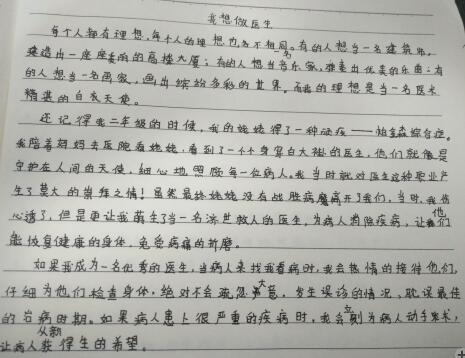 我想做医生
每个人都有理想,每个人的理想也各不相同。有的人想当一名建筑师,
建造出一座座美丽的高楼大厦;有的人想当一名音乐家,演奏出优美的乐曲;有
的人想当一名画家,画出缤纷多彩的世界。而我的理想是当一名医术
精湛的白衣天使。
还记得我二年级的时候,我的姥姥得了一种顽疾——帕金森综合症。
我陪着妈妈去医院看姥姥,看到了一个个身穿白大褂的医生,他们就像是
守护在人间的天使,细心地照顾每一位病人。我当时就对医生这种职业产
生了莫大的崇拜之情!虽然最终姥姥没有战胜病魔离开了我们,当时,我伤
心透了,但是更让我萌生了当一名济世救人的医生,为病人消除疾病,让他们
能恢复健康的身体,免受病痛的折磨。
如果我成为一名优秀的医生,当病人来找我看病时,我会热情的接待他们,
仔细为他们检查身体,绝对不会疏忽大意,发生误诊的情况,耽误最佳
的治病时期。如果病人患上很严重的疾病时,我会立刻为病人动手术,
让病人从新获得生的希望。